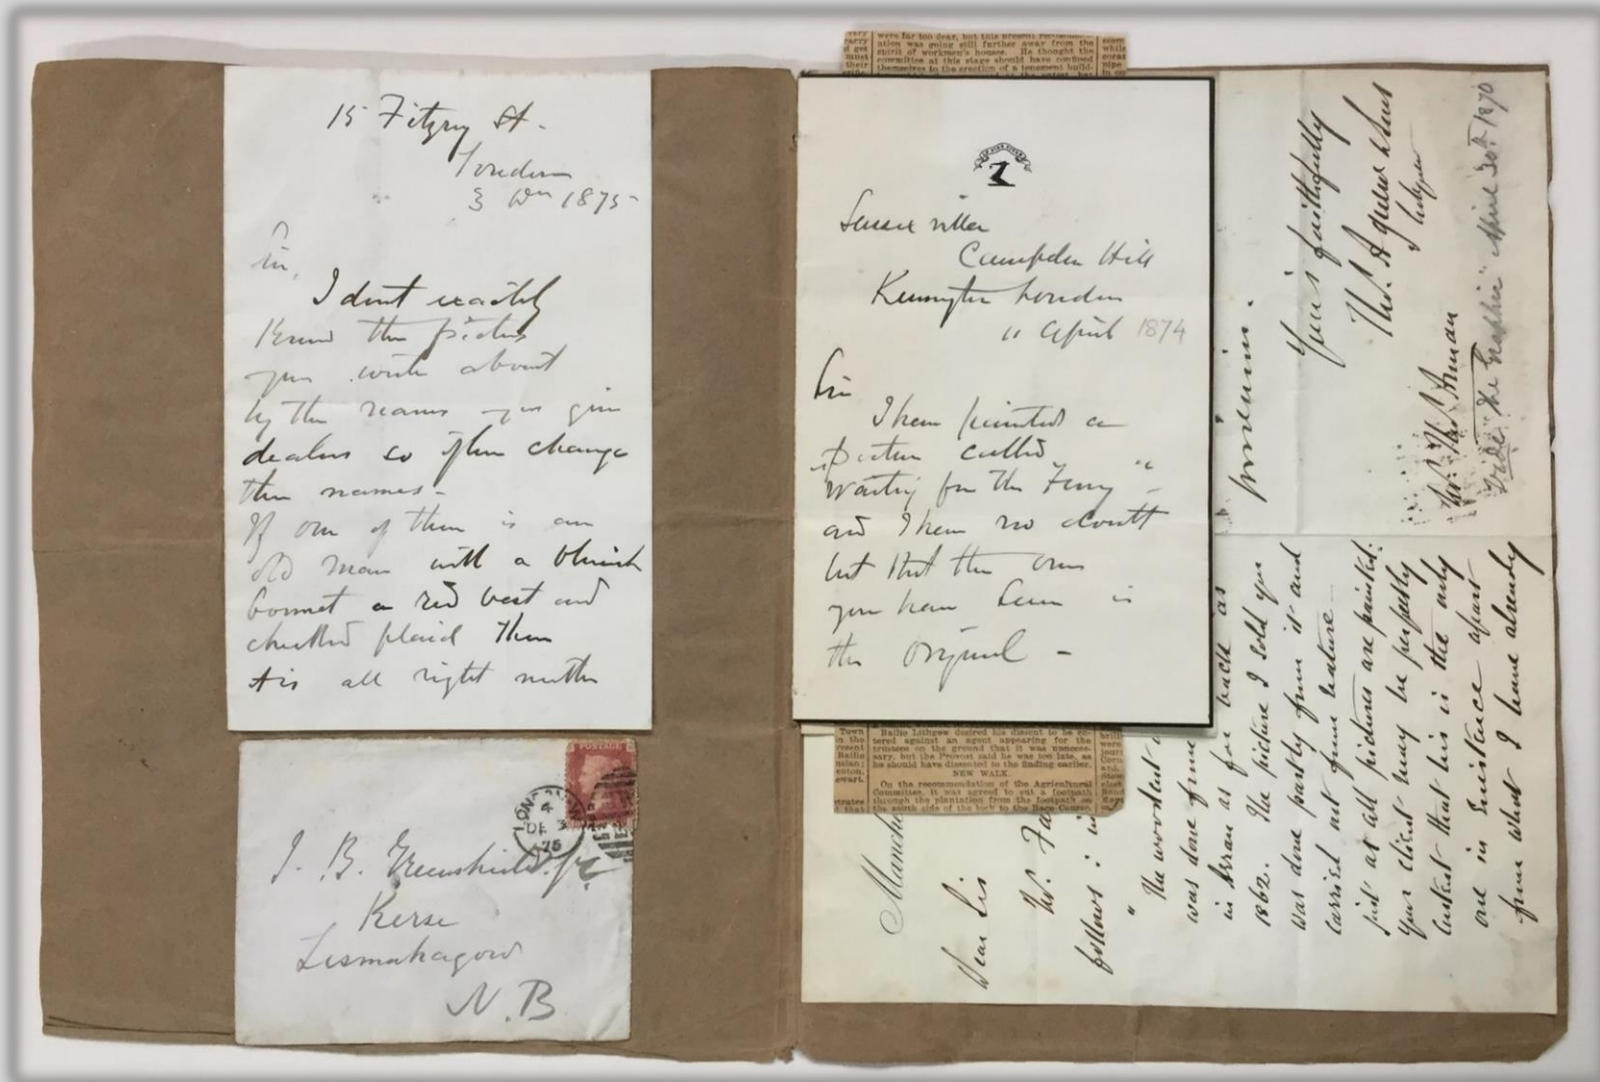 15 Fitzroy St.
London
3 Dec 1875
Sir,
I dont exactly
Know the pictures
you write about
by the names you give
dealers so often change
the names -
If one of them is an
old man with a bluish
bonnet a red vest and
checked plaid then
tis all right neither
POSTAGE
LONDON
4
DE 3
75
J. B. Greenshields Esq
Kerse
Lesmahagow
N.B
were far too dear, but this present recommend-
ation was going still further away from the
spirit of workmen's houses. He thought the
committee at this stage should have confined
themselves to the erection of a tenement build-
Campden Hill
Kensington London
11 April 1874
Sir
I have painted a
picture called
"Waiting for the Ferry"
and I have no doubt
but that the one
you have seen is
the original -
Bailie Lithgow desired his dissent to be en-
tered against an agent appearing for the
trustees on the ground that it was unneces-
sary, but the Provost said he was too late, as
he should have dissented to the finding earlier.
NEW WALK.
On the recommendation of the Agricultural
Committee, it was agreed to put a footpath
through the plantation from the footpath on
the south side of the loch to the Race Course
Manche
Dear Sir
W. Fa
follows: in
"The woodcut
was done from
in Arran as far back as
1862. The picture I sold you
was done partly from it and
carried out from nature -
just as all pictures are painted:
Your client may be perfectly
content that his is the only
one in existence apart
from what I have already
Yours faithfully
Thos. Agnew & Sons
Vide "The Graphic" April 30th 1870